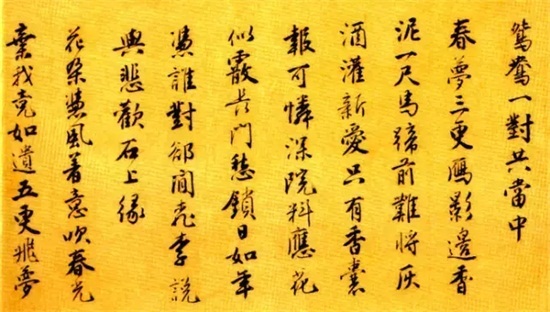 鴛鴦一對共當中
春夢三更雁影邊香
泥一尺馬蹄前難將灰
酒灌新愛只有香囊
報可憐深院料應花
似霰長門愁鎖日如年
憑誰對卻閒桃李說
與悲歡石上緣
花朵憑風著意吹春光
棄我竟如遺五更飛夢